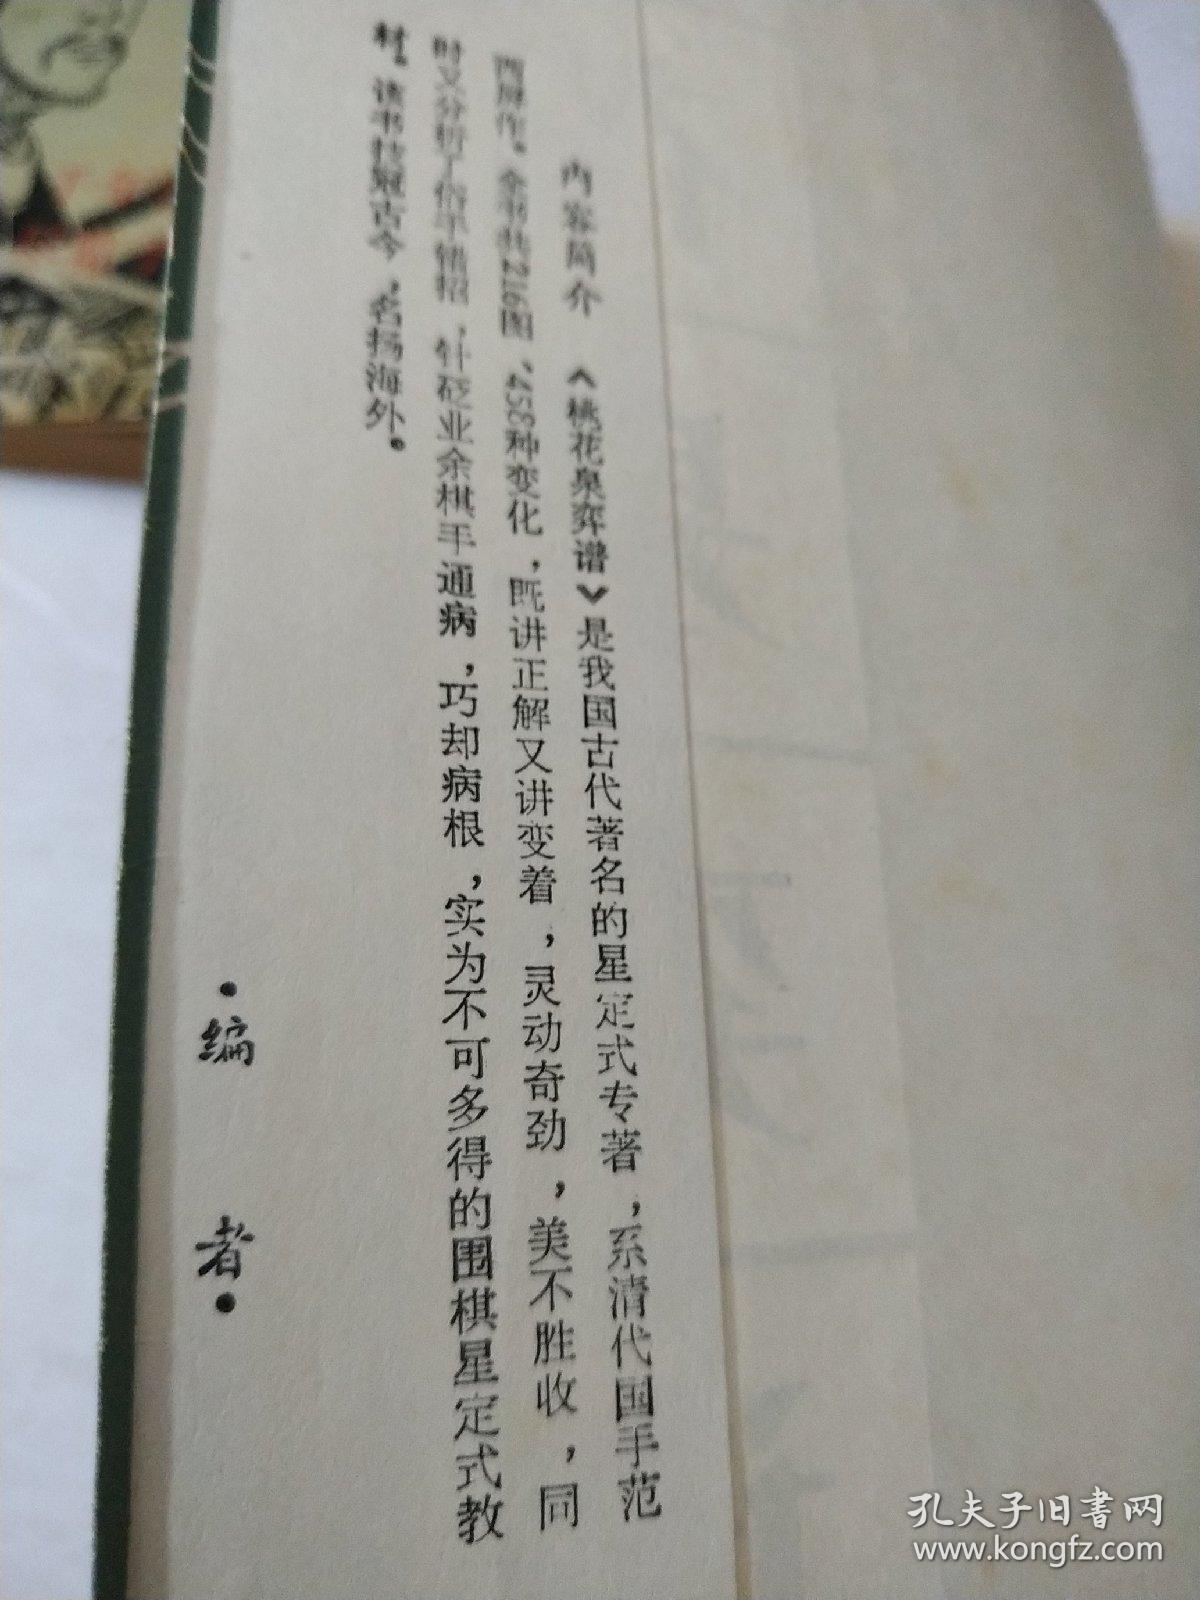 内容简介 《桃花泉弈谱》是我国古代著名的星定式专著，系清代国手范
西屏作。全书共216图，458种变化，既讲正解又讲变着，灵动奇劲，美不胜收，同
时又分析了俗手错招，针砭业余棋手通病，巧却病根，实为不可多得的围棋星定式教
材。该书技冠古今，名扬海外。
·编 者·
孔夫子旧书网
www.kongfz.com